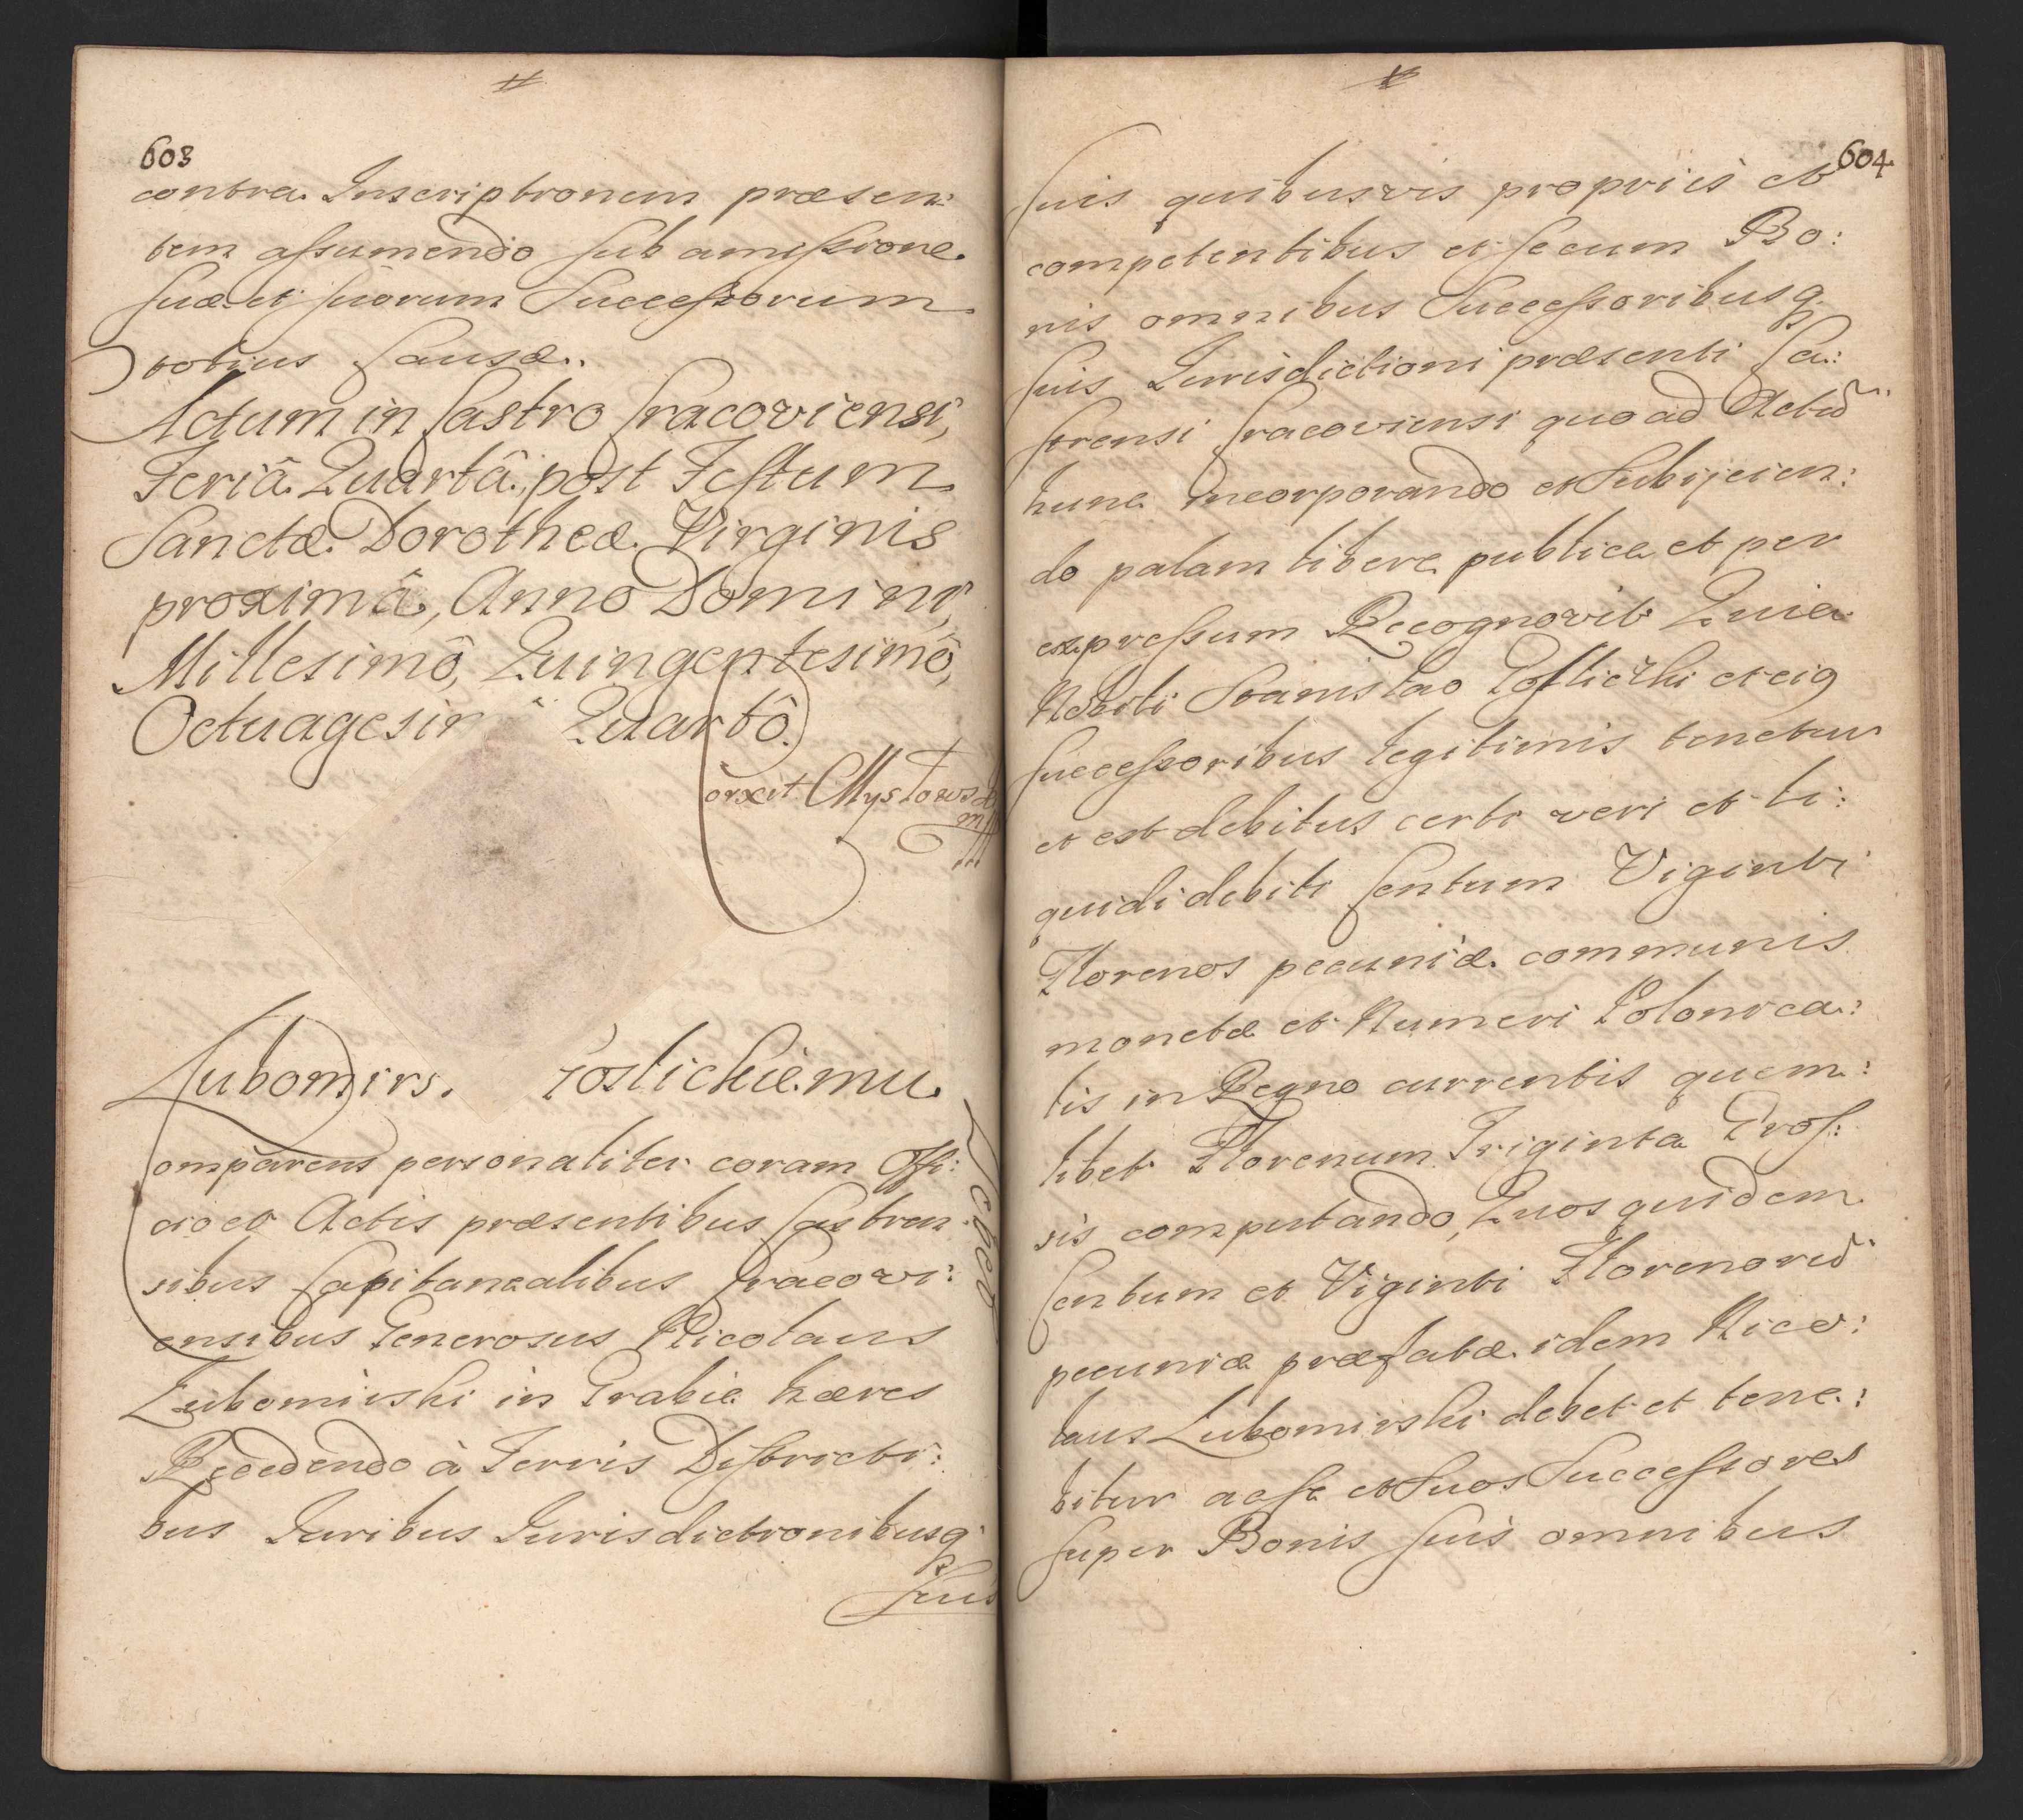 603
contra Inscriptionem præsen:
tem assumendo sub amissione
suæ et suorum Successorum
totius Causæ.
Actum in Castro Cracoviensi,
Feriâ Quartâ, post Festum
Sanctæ Dorotheæ Virginis
proximâ, Anno Domini,
Millesimô, Quingentesimô,
Octuagesim Quartô.
Corrxit Mystowski
mp
Lubomirs. Goslickiemu
Comparens personaliter coram Offi:
cio et Actis præsentibus Castren:
sibus Capitanealibus Cracovi:
ensibus Generosus Nicolaus
Lubomirski in Grabie hæres
Recedendo à Terris Districti:
bus Juribus Jurisdictionibusq
suis
Debet
604
suis quibusvis propriis et
competentibus et secum Bo:
nis omnibus Successoribusq
suis Jurisdictioni præsenti Ca:
strensi Cracoviensi quo ad Actū
hunc incorporando et Subijcien:
do palam libere publice et per
expressum Recognovit Quia
Nobili Stanislao Goslickhi et eig
successoribus legitimis tenetur
et est debitus certi veri et li:
quidi debiti Centum Viginti
Florenos pecuniæ communis
monetæ et Numeri Polonica:
lis in Regno currentis quem:
libet Florenum Triginta Gros:
sis computando, Quos quidem
Centum et Viginti Florenorū
pecuniæ præfatæ idem Nico:
laus Lubomirski debet et tene:
bitur ac se et Suos Successores
super Bonis suis omnibus